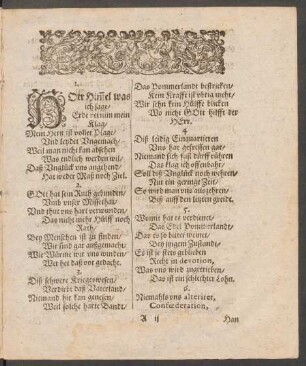 1.
Hör Him̃el was
ich sage/
Erde vernim mein
Klag/
Mein Hertz ist voller Plage/
Und leydet Ungemach/
Weil man nicht kan absehen
Was endlich werden wil/
Daß Unglück uns umgehend/
Hat weder Maß noch Ziel.
2.
GOtt hat sein Ruth gebunden/
Umb unser Missethat/
Und thut uns hart verwunden/
Das nicht mehr Hülff noch
Rath/
Bey Menschen ist zu finden/
Wir sind gar außgemacht/
Wer hat daß vor gedacht.
3.
Diß schwere Kriegeswesen/
Verdirbt daß Vaterland/
Niemand hie kan genesen/
Weil solche harte Bandt/
Das Pommerlandt bestricken/
Kein Krafft ist übrig mehr/
Wir sehn kein Hülffe blicken
Wo nicht GOtt hilfft der
HErr.
4.
Diß stätig Einquartieren
Uns hat gefressen gar/
Niemand sich fast dürff rühren
Das klag ich offenbahr/
Soll diß Unglück noch wehren/
Nur ein geringe Zeit/
So wird man uns außzehren/
Biß auff den letzten
5.
Womit hat es verdienet/
Das Edel Pommerlandt/
Bey jetzigem Zustandt/
Es ist ja stets geblieben
Recht in devotion,
Was uns wird zugetrieben/
Das ist ein schlechter Lohn.
6.
Niemahls uns alterirt,
Confœderation,
A ij
Han